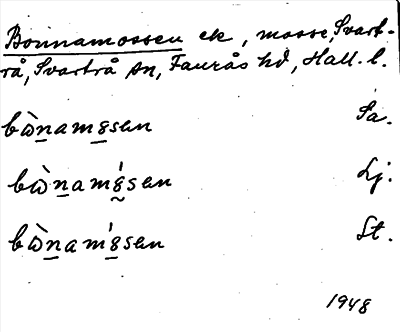 Bonnamossen ek, mosse, Svart-
rå, Svartrå sn, Faurås hd, Hall. l.
bὼn̲amo̲sen Sa.
bὼn̲amó̲sen Lj.
bὼn̲amó̲sen St.
1948